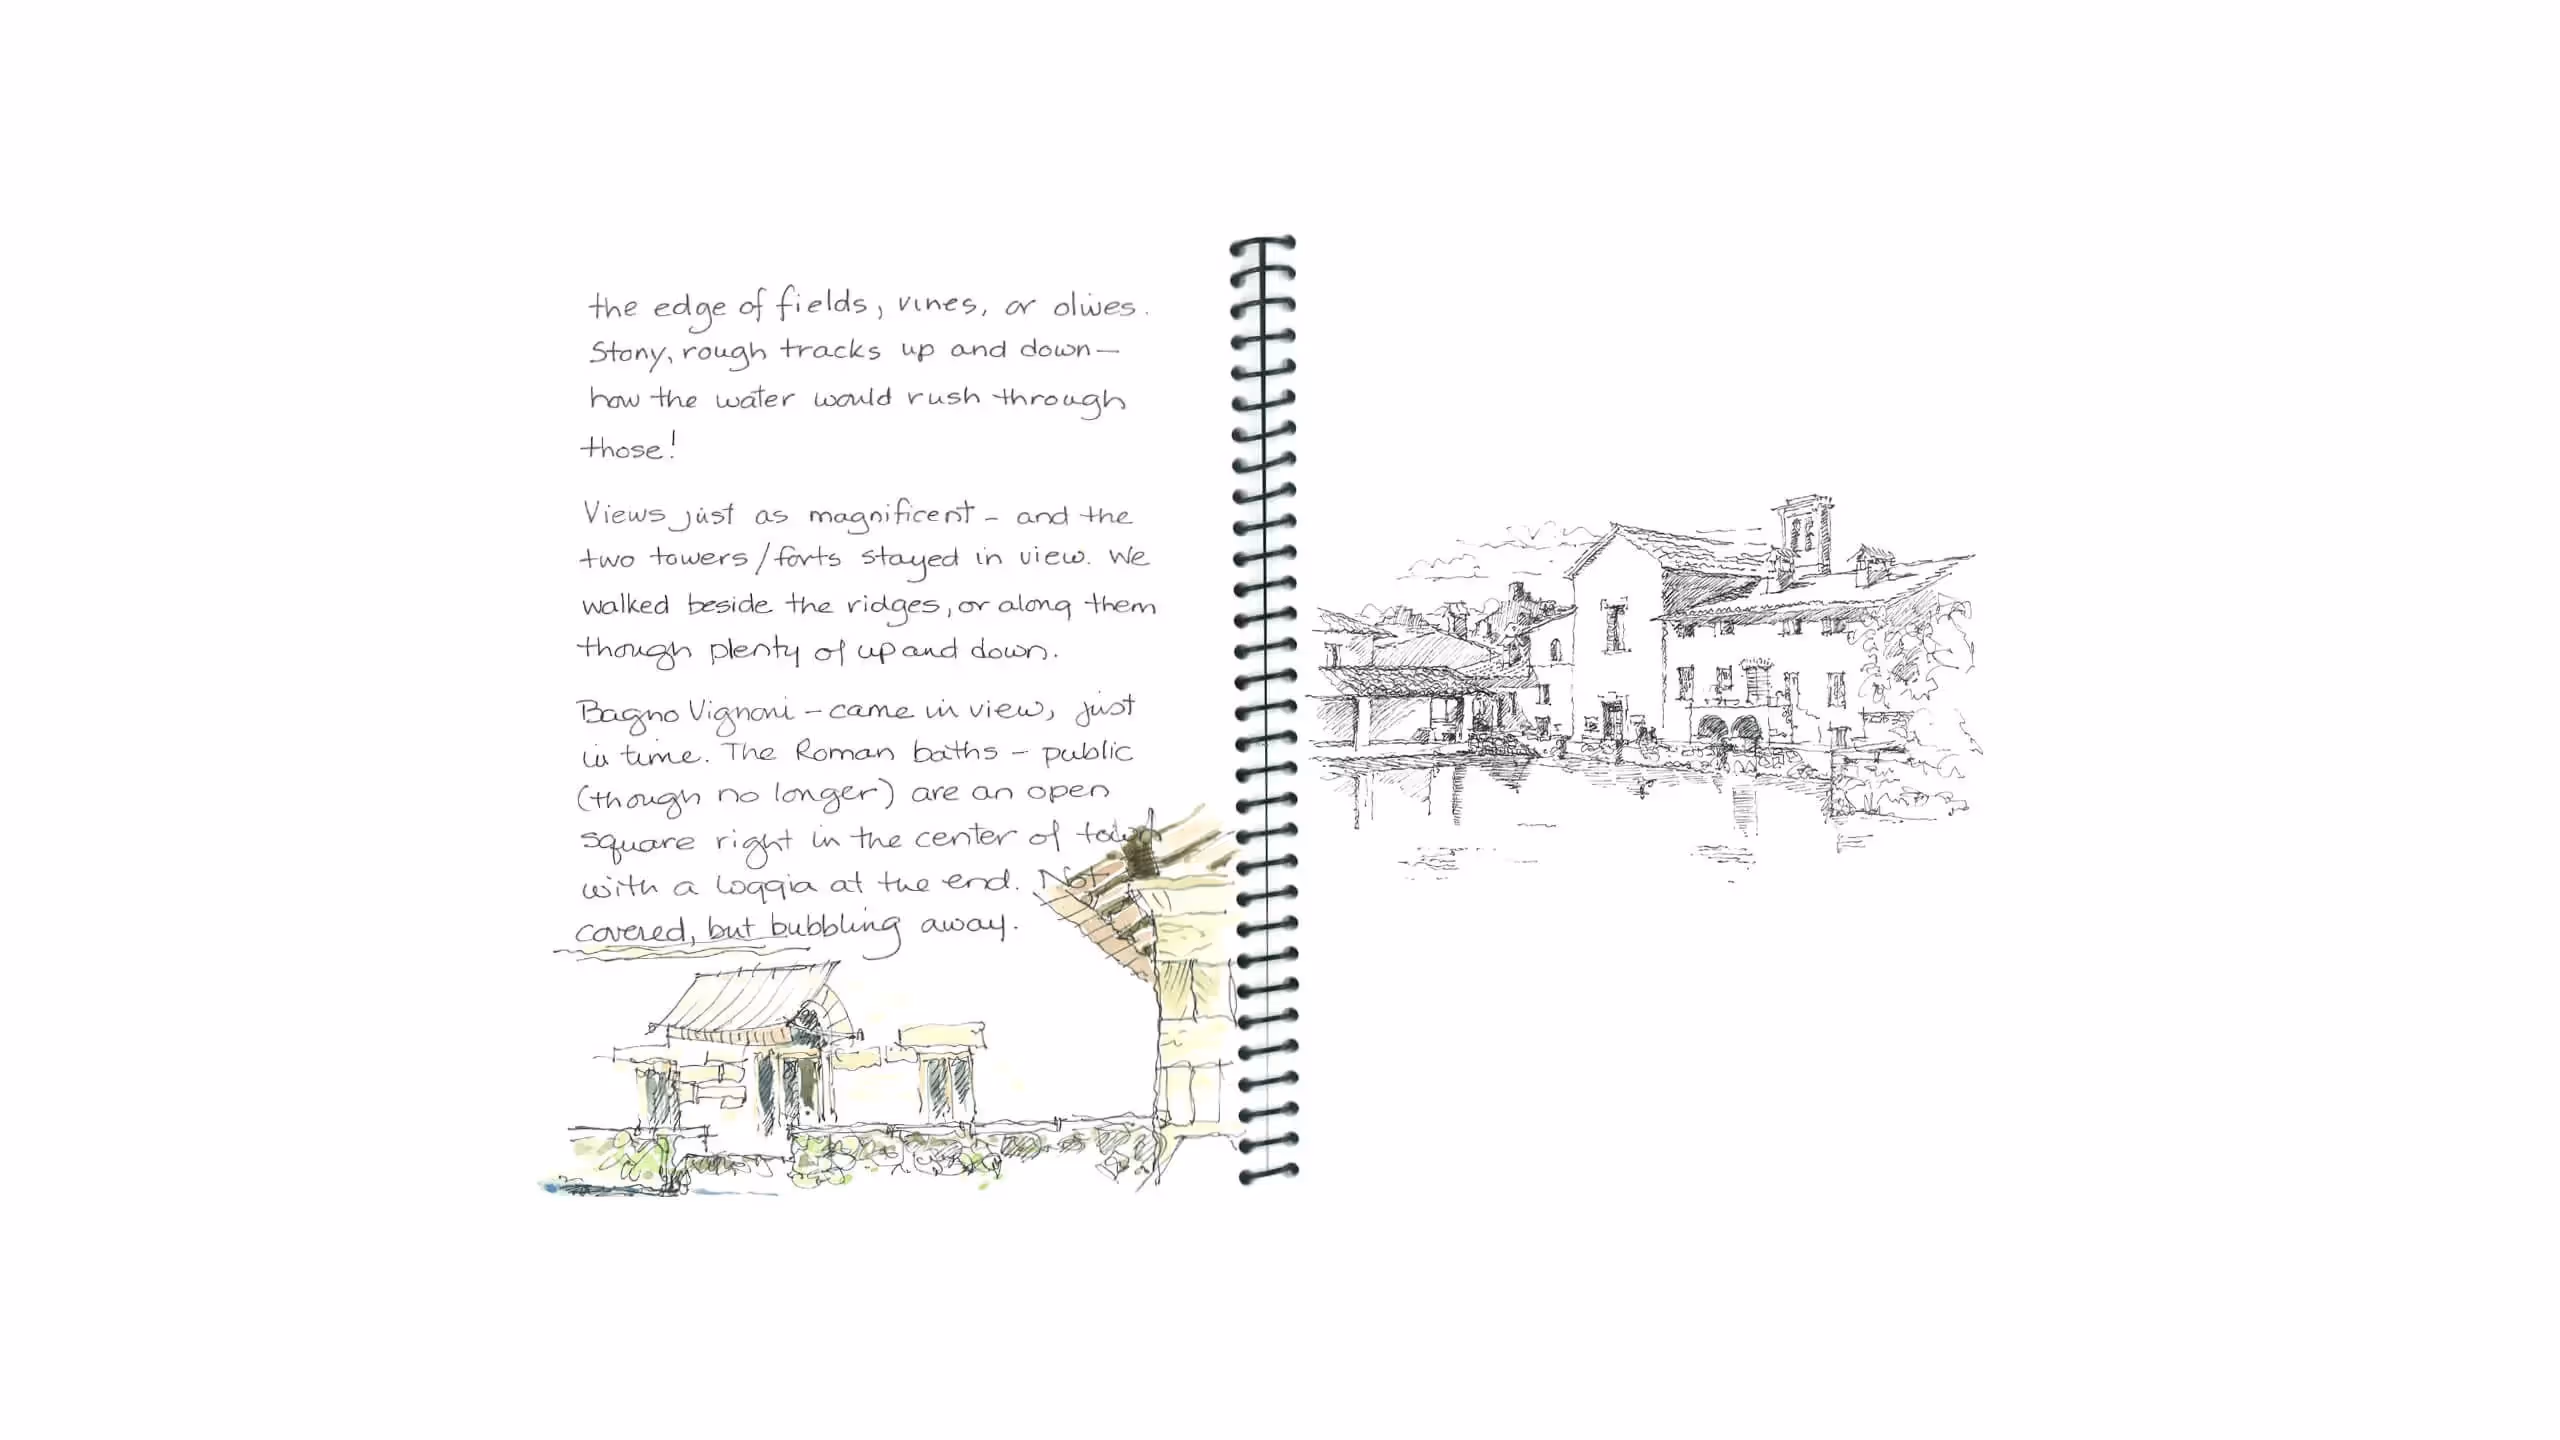 the edge of fields, vines, or olives.
Stony, rough tracks up and down—
how the water would rush through
those!
Views just as magnificent – and the
two towers/forts stayed in view. We
walked beside the ridges, or along them
though plenty of up and down.
Bagno Vignoni – came in view, just
in time. The Roman baths – public
(though no longer) are an open
square right in the center of
with a loggia at the end. Not
covered, but bubbling away.